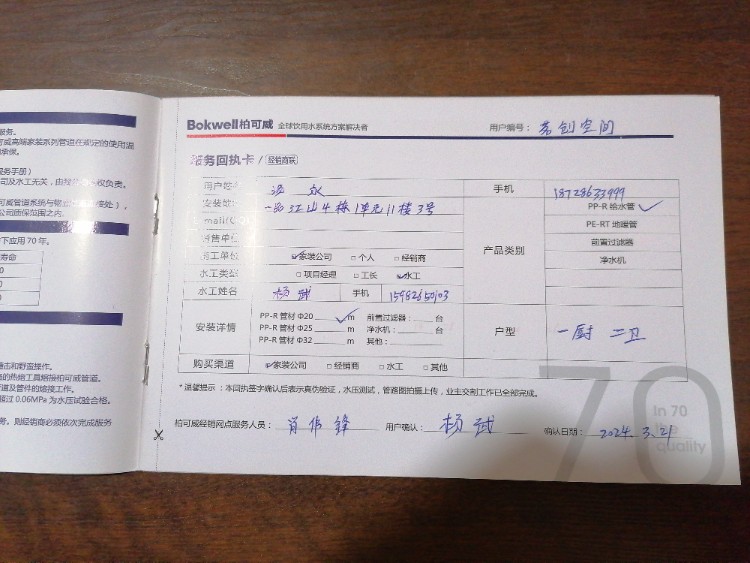 服务。
威高端家装系列管道在规定的使用温
承保。
服务手册)
司及水工无关,由
权负责。
可威管道系统与
公司质保范围之内。
下应用70年。
寿命
0
0
0
撞击和野蛮操作。
的热熔工具熔接柏可威管道。
道及管件的熔接工作。
超过0.06MPa为水压试验合格。
务。则经销商必须依次完成服务
Bokwell柏可威 全球饮用水系统方案解决者
用户编号:
创空间
服务回执卡/经销商联
用户姓名
手机 18728633999
一品江山4栋1单元11楼3号
产品类别
PP-R 给水管 ✓
PE-RT 地暖管
前置过滤器
净水机
销售单位
施工单位 ☑家装公司 □个人 □经销商
水工类别 □项目经理 □工长 ☑水工
水工姓名 杨武 手机
安装详情
PP-R 管材 Φ20 ✓ m 前置过滤器: 台
PP-R 管材 Φ25 m 净水机: 台
PP-R 管材 Φ32 m 其他:
户型 一厨 二卫
购买渠道 ☑家装公司 □经销商 □水工 □其他
*温馨提示:本回执签字确认后表示真伪验证,水压测试,管路图拍摄上传,业主交割工作已全部完成。
柏可威经销网点服务人员: 肖伟锋 用户确认: 杨武 确认日期: 2024.3.21
70
In 70
quality